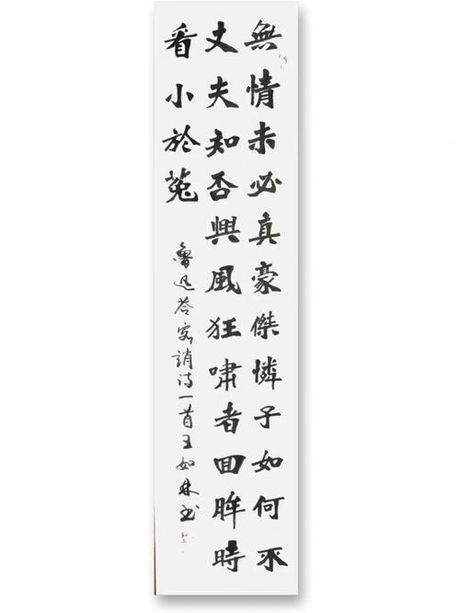 無情未必真豪傑憐子如何不
丈夫知否興風狂嘯者回眸時
看小於菟
魯迅答客誚诗一首王如林书